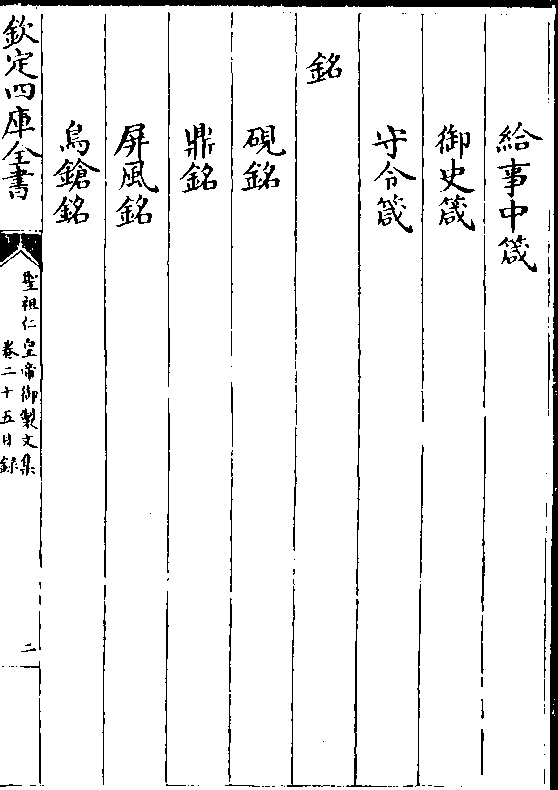 給事中箴
御史箴
守令箴
銘
硯銘
鼎銘
屏風銘
鳥鎗銘
欽定四庫全書
聖祖仁皇帝御製文集
卷二十五目錄
二